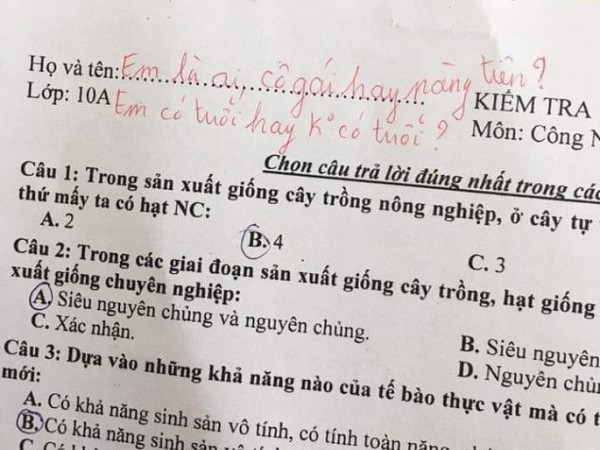 Họ và tên: Em là ai, cô gái hay nàng tiên?
KIỂM TRA
Lớp: 10A Em có tuổi hay k° có tuổi?
Môn: Công
Chọn câu trả lời đúng nhất trong các
Câu 1: Trong sản xuất giống cây trồng nông nghiệp, ở cây tự
thứ mấy ta có hạt NC:
A. 2 B. 4 C. 3
Câu 2: Trong các giai đoạn sản xuất giống cây trồng, hạt giống
xuất giống chuyên nghiệp:
A. Siêu nguyên chủng và nguyên chủng. B. Siêu nguyên
C. Xác nhận. D. Nguyên
Câu 3: Dựa vào những khả năng nào của tế bào thực vật mà có
mới:
A. Có khả năng sinh sản vô tính, có tính toàn năng
B. Có khả năng sinh sản
C.